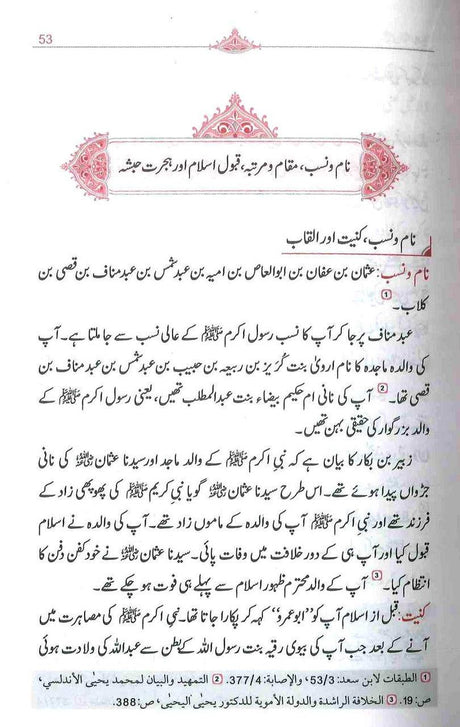 53
نام و نسب، مقام و مرتبہ، قبول اسلام اور ہجرت حبشہ
نام و نسب، کنیت اور القاب
نام و نسب: عثمان بن عفان بن ابوالعاص بن امیہ بن عبد شمس بن عبد مناف بن قصی بن
کلاب۔ 1
عبد مناف پر جا کر آپ کا نسب رسول اکرم ﷺ کے عالی نسب سے جا ملتا ہے۔ آپ
کی والدہ ماجدہ کا نام ارویٰ بنت کُرَیز بن ربیعہ بن حبیب بن عبد شمس بن عبد مناف بن
قصی تھا۔ 2 آپ کی نانی ام حکیم بیضاء بنت عبدالمطلب تھیں، یعنی رسول اکرم ﷺ کے
والد بزرگوار کی حقیقی بہن تھیں۔
زبیر بن بکار کا بیان ہے کہ نبی اکرم ﷺ کے والد ماجد اور سیدنا عثمان رضی اللہ عنہ کی نانی
جڑواں پیدا ہوئے تھے۔ اس طرح سیدنا عثمان رضی اللہ عنہ گویا نبی کریم ﷺ کی پھوپھی زاد کے
فرزند تھے اور نبی اکرم ﷺ آپ کی والدہ کے ماموں زاد تھے۔ آپ کی والدہ نے اسلام
قبول کیا اور آپ ہی کے دور خلافت میں وفات پائی۔ سیدنا عثمان رضی اللہ عنہ نے خود کفن دفن کا
انتظام کیا۔ 3 آپ کے والد محترم ظہور اسلام سے پہلے ہی فوت ہو چکے تھے۔
کنیت: قبل از اسلام آپ کو ’’ابو عمرو‘‘ کہہ کر پکارا جاتا تھا۔ نبی اکرم ﷺ کی مصاہرت میں
آنے کے بعد جب آپ کی بیوی رقیہ بنت رسول اللہ کے بطن سے عبداللہ کی ولادت ہوئی
1 الطبقات لابن سعد: 53/3، والإصابة: 377/4. 2 التمهيد والبيان لمحمد يحيٰى الأندلسي،
ص: 19. 3 الخلافة الراشدة والدولة الأموية للدكتور يحيٰى اليحيٰى، ص: 388.